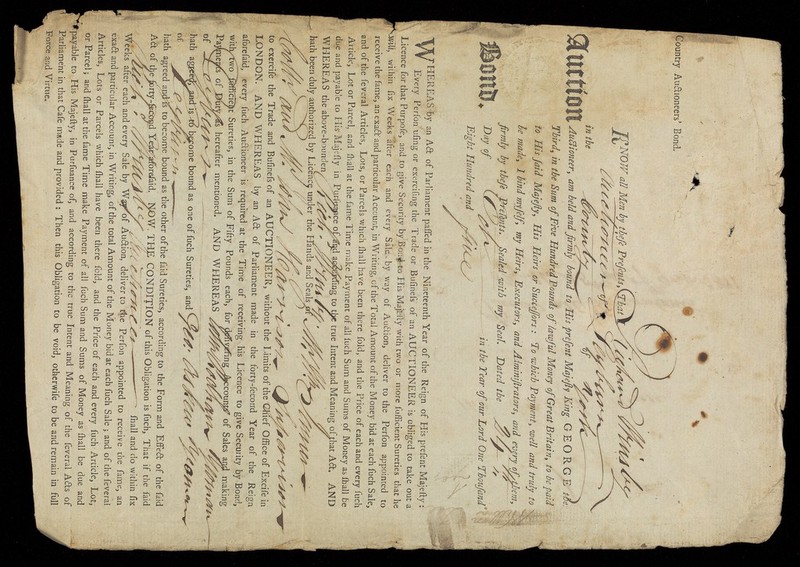 Country Auctioneers' Bond.
Auction
Bond.
KNOW all Men by these Presents, That I Richard Milsby
Auctioneer of Leyburn
in the County of York
Auctioneer, am held and firmly bound to His present Majesty King GEORGE the
Third, in the Sum of Five Hundred Pounds of lawful Money of Great Britain, to be paid
to His said Majesty, His Heirs or Successors: To which Payment, well and truly to
be made, I bind myself, my Heirs, Executors, and Administrators, and every of them,
firmly by these Presents. Sealed with my Seal. Dated the
Day of in the Year of our Lord One Thousand
Eight Hundred and five
WHEREAS by an Act of Parliament passed in the Nineteenth Year of the Reign of His present Majesty:
Every Person using or exercising the Trade or Business of an AUCTIONEER is obliged to take out a
Licence for that Purpose, and to give Security by Bond to His Majesty with two or more sufficient Sureties that he
will, within six Weeks after each and every Sale, by way of Auction, deliver to the Person appointed to
receive the same, an exact and particular Account, in Writing, of the Total Amount of the Money bid at each such Sale,
and of the several Articles, Lots, or Parcels which shall have been there sold, and the Price of each and every such
Article, Lot or Parcel, and shall at the same Time make Payment of all such Sum and Sums of Money as shall be
due and payable to His Majesty in Pursuance of and according to the true Intent and Meaning of that Act. AND
WHEREAS the above-bounden Richard
hath been duly authorized by Licence under the Hands and Seals of
to exercise the Trade and Business of an AUCTIONEER, without the Limits of the Chief Office of Excise in
LONDON. AND WHEREAS by an Act of Parliament made in the forty-second Year of the Reign
aforesaid, every such Auctioneer is required at the Time of receiving his Licence to give Security by Bond,
with two sufficient Sureties, in the Sum of Fifty Pounds each, for delivering Accounts of Sales and making
Payments of Duty as hereafter mentioned. AND WHEREAS
of Leyburn
hath agreed, and is to become bound as one of such Sureties, and
of Leyburn
hath agreed and is to become bound as the other of the said Sureties, according to the Form and Effect of the said
Act of the forty-second Year aforesaid. NOW THE CONDITION of this Obligation is such, That if the said
Richard shall and do within six
Weeks after each and every Sale by Way of Auction, deliver to the Person appointed to receive the same, an
exact and particular Account, in Writing, of the total Amount of the Money bid at each such Sale; and of the several
Articles, Lots or Parcels which shall have been there sold, and the Price of each and every such Article, Lot,
or Parcel; and shall at the same Time make Payment of all such Sum and Sums of Money as shall be due and
payable to His Majesty, in Pursuance of, and according to the true Intent and Meaning of the several Acts of
Parliament in that Case made and provided: Then this Obligation to be void, otherwise to be and remain in full
Force and Virtue.